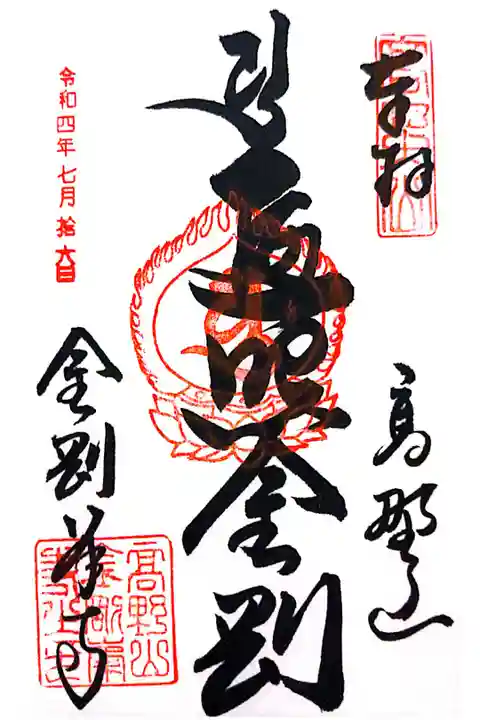 奉拝
高野山
遍照金剛
金剛峯寺
高野山
金剛峯
令和四年七月拾六日